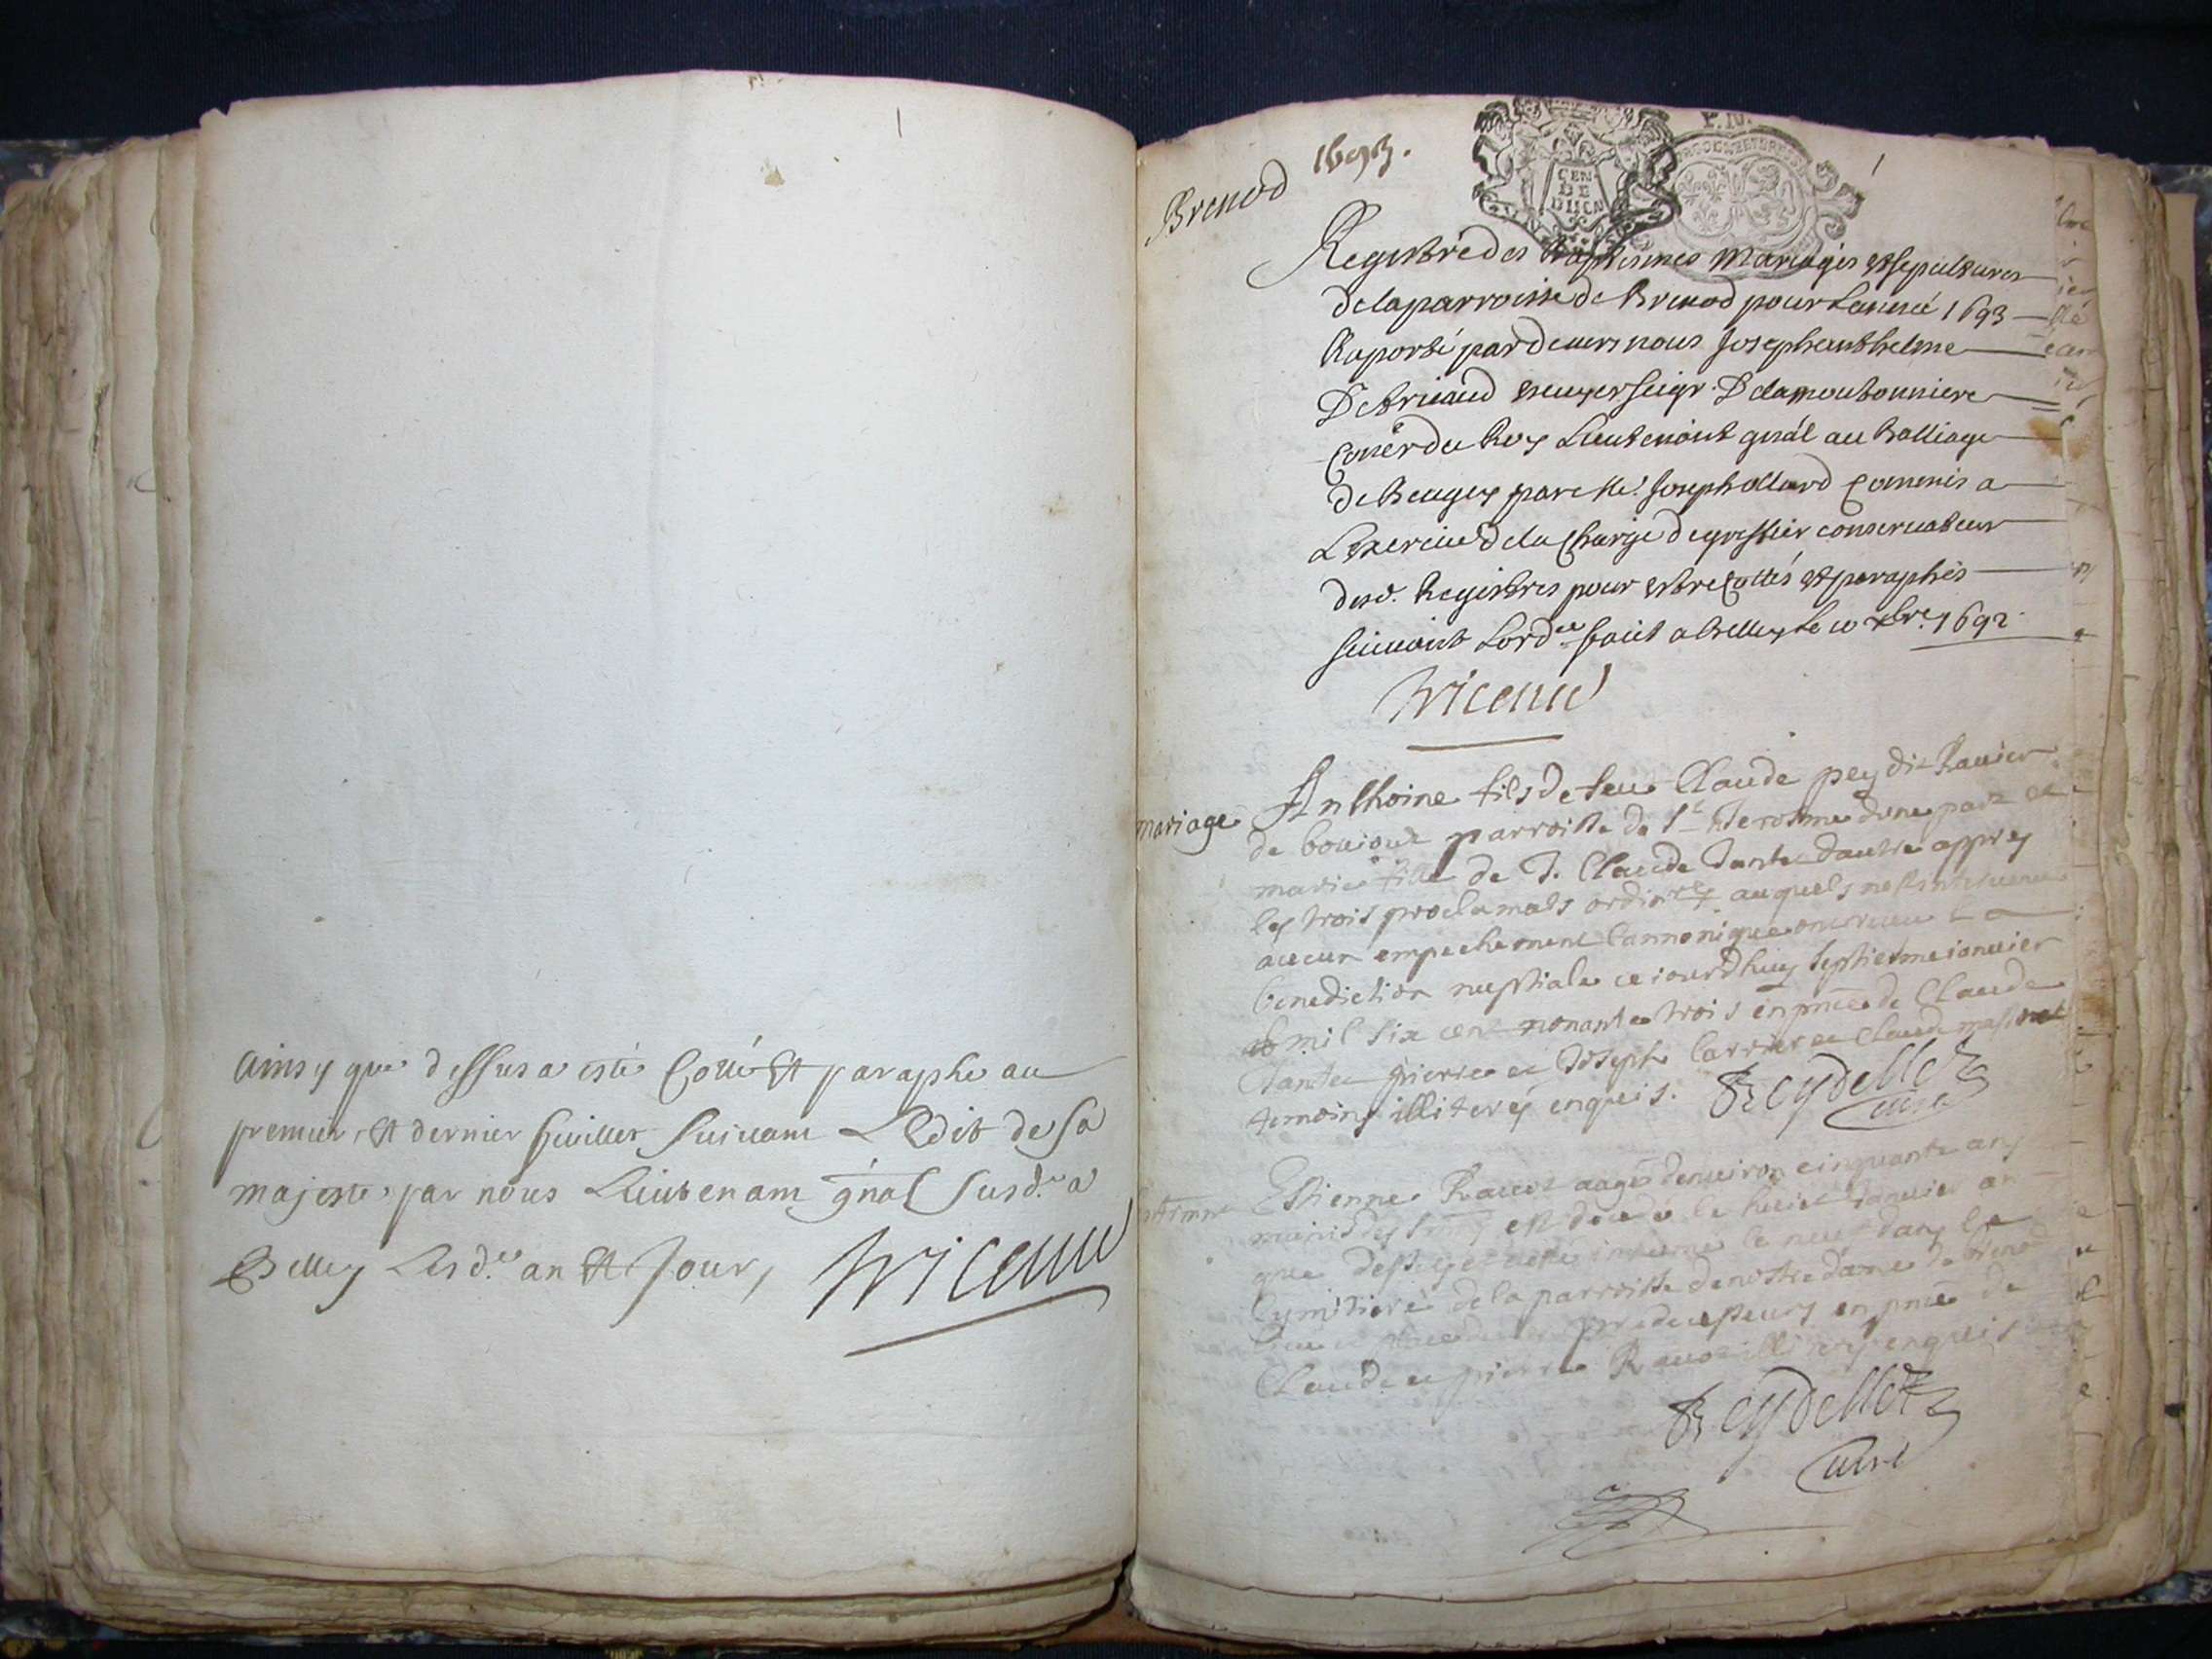 Ainsy que dessus a esté Cotté Et paraphe au
premier, Et dernier feuillet Suivant L'Edit de Sa
majesté par nous Lieutenant gnãl Susd.t a
Belley Lesd.ts an Et Jour,
Briaud
Brenod
1693.
GEN
DE
DIJON
Registre des Baptesmes Mariages et sepultures
de la parroisse de Brenod pour Lanneé 1693
Raporté par devers nous Joseph anthelme
De Briaud escuyer seigr. De la moutonniere
Coner du Roy Lieutenant gnãl au Balliage
de Beugey par Me. Joseph ollard Commis a
Lexercice de la Charge de greffier conservateur
desd. Registres pour estre Cottés et paraphés
suivant Lord.ce fait a Belley Le 10 xbre. 1692
Briaud
mariage
Anthoine fils de feu Claude pey dit Ravier
de parroisse de St. Hierosme dune part et
marie fille de Claude Tante dautre appres
les trois proclamats ordinres auquels nest intervenu
aucun empechement Cannonique ont receu la
benediction nuptiale ce iourdhuy septiesme ianvier
mil six cent nonante trois en pnce de Claude
Tante pierre et Joseph Carrier et Claude
temoins illiterés enquis.
Reydellet
curé
Estienne Ravot aagé denviron cinquante ans
munis des est decedé le huict Janvier an
que dessus et a esté inhumé le neuf dans le
Cymitiere de la parroisse de nostre dame de brenod
predecesseurs en pnce de
Claude et pierre Ravot illiterés enquis
Reydellet
curé